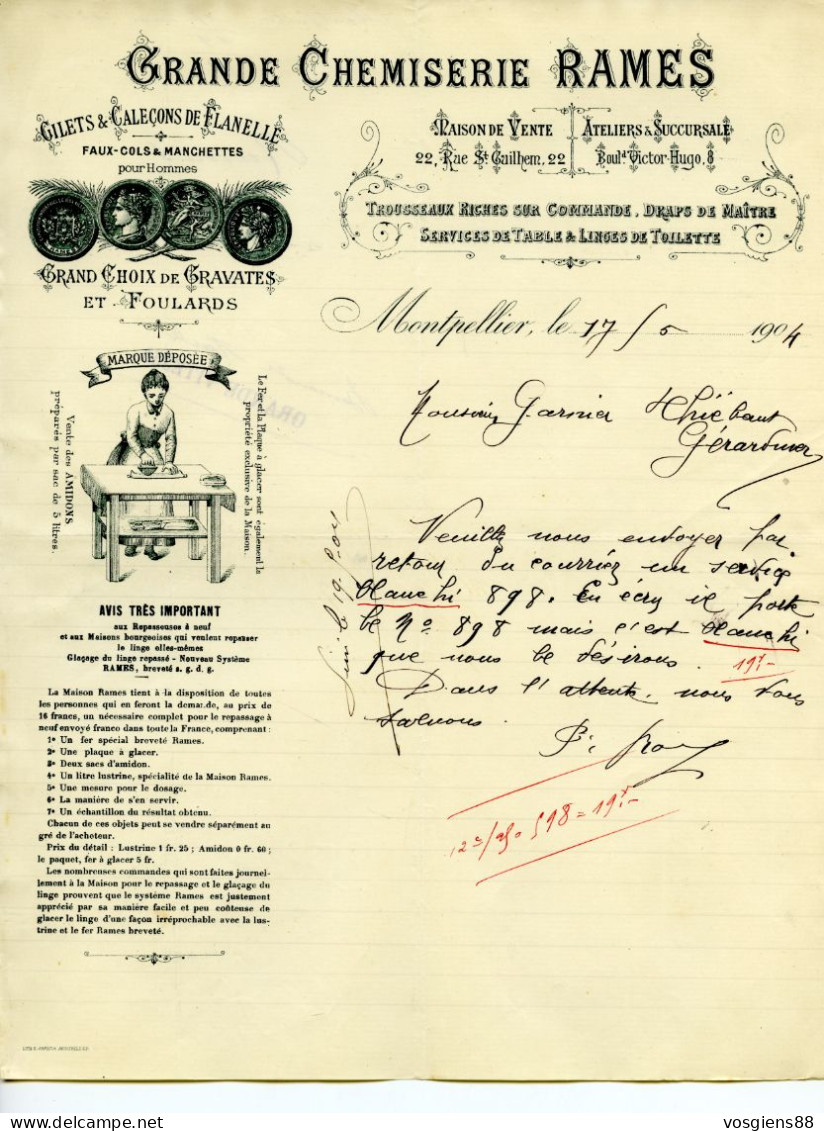 GRANDE CHEMISERIE RAMES
GILETS & CALEÇONS DE FLANELLE
FAUX-COLS & MANCHETTES
pour Hommes
GRAND CHOIX DE CRAVATES
ET FOULARDS
MAISON DE VENTE
22, Rue St Guilhem, 22
ATELIERS & SUCCURSALE
Boul.d Victor-Hugo, 8
TROUSSEAUX RICHES SUR COMMANDE, DRAPS DE MAÎTRE
SERVICES DE TABLE & LINGES DE TOILETTE
Montpellier, le 17/5 1904
MARQUE DÉPOSÉE
Vente des AMIDONS
préparés par sac de 5 litres.
Le Fer et la Plaque à glacer sont également la
propriété exclusive de la Maison.
Garnier Thiébaut
Gérardmer
Veuillez nous envoyer par
retour du courrier un service
blanchi 898. En écru il porte
le No 898 mais c'est blanchi
que nous le désirons.
19f-
Dans l'attente, nous vous
saluons.
AVIS TRÈS IMPORTANT
aux Repasseuses à neuf
et aux Maisons bourgeoises qui veulent repasser
le linge elles-mêmes
Glaçage du linge repassé - Nouveau Système
RAMES, breveté s. g. d. g.
La Maison Rames tient à la disposition de toutes
les personnes qui en feront la demande, au prix de
16 francs, un nécessaire complet pour le repassage à
neuf envoyé franco dans toute la France, comprenant :
1° Un fer spécial breveté Rames.
2° Une plaque à glacer.
3° Deux sacs d'amidon.
4° Un litre lustrine, spécialité de la Maison Rames.
5° Une mesure pour le dosage.
6° La manière de s'en servir.
7° Un échantillon du résultat obtenu.
Chacun de ces objets peut se vendre séparément au
gré de l'acheteur.
Prix du détail : Lustrine 1 fr. 25 ; Amidon 0 fr. 60 ;
le paquet, fer à glacer 5 fr.
Les nombreuses commandes qui sont faites journel-
lement à la Maison pour le repassage et le glaçage du
linge prouvent que le système Rames est justement
apprécié par sa manière facile et peu coûteuse de
glacer le linge d'une façon irréprochable avec la lus-
trine et le fer Rames breveté.
delcampe.net
vosgiens88